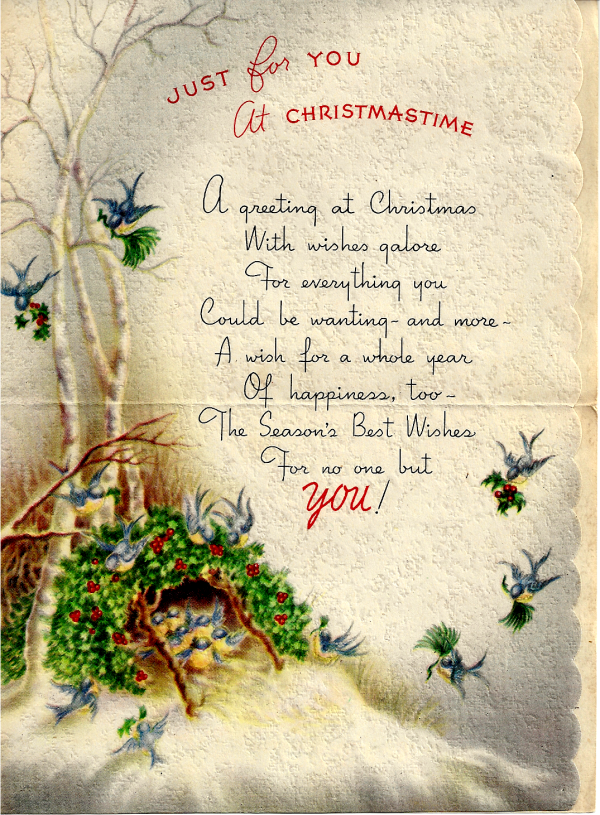 JUST for YOU
At CHRISTMASTIME
A greeting at Christmas
With wishes galore
For everything you
Could be wanting - and more -
A wish for a whole year
Of happiness, too -
The Season's Best Wishes
For no one but
YOU!